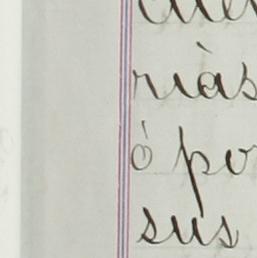 rias
ó po
sus